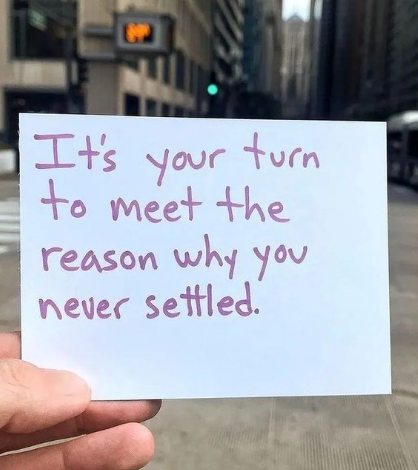 It's your turn
to meet the
reason why you
never settled.